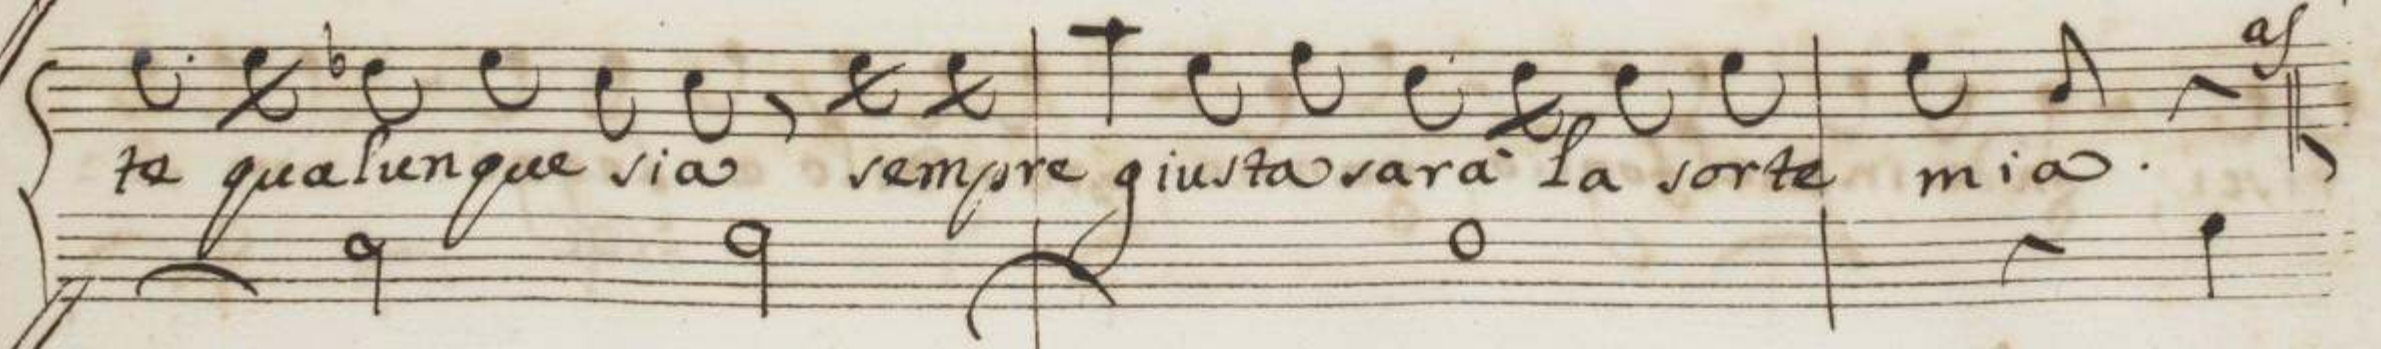 as
te qualunque sia sempre giusta sarà la sorte mia.